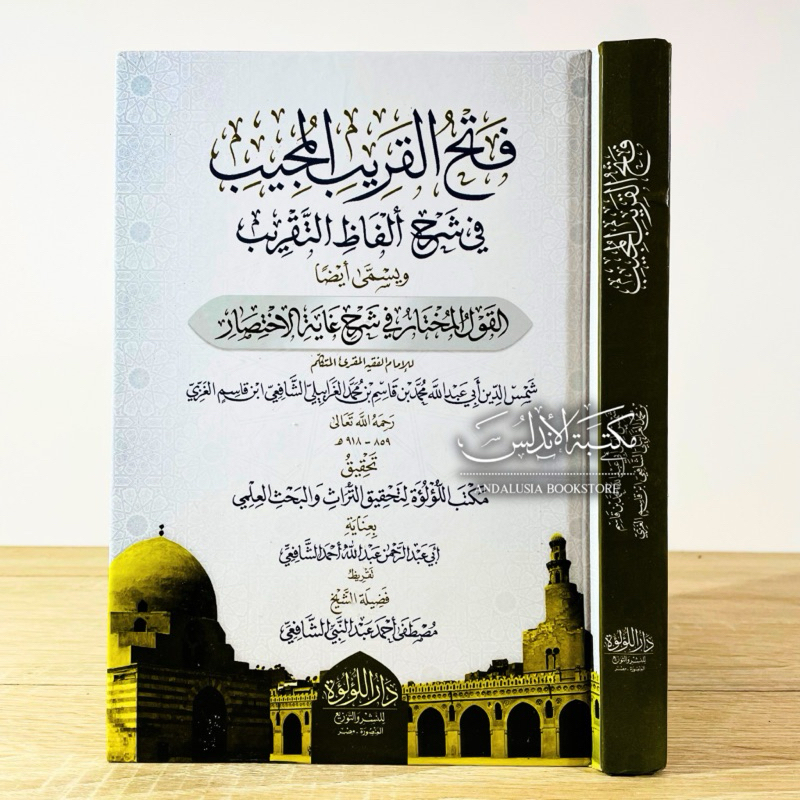 فَتْحُ القَرِيبِ المُجِيبِ
فِي شَرْحِ أَلْفَاظِ التَّقْرِيبِ
ويسمى أيضًا
القَوْلُ المُخْتَار فِي شَرْحِ غَايَةِ الاخْتِصَارِ
للإمام الفقيه المقرئ المتكلم
شَمْسِ الدِّينِ أَبِي عَبْدِ اللَّه مُحَمَّد بْنِ قَاسِم بْنِ مُحَمَّد الغَرَابِيلِيِّ الشَّافِعِيِّ ابْنِ قَاسِمٍ الغَزِّيِّ
رَحِمَهُ اللَّه تَعَالَى
٨٥٩ - ٩١٨ هـ
تَحْقِيقُ
مَكْتَبِ اللُّؤْلُؤَة لِتَحْقِيقِ التُّرَاثِ وَالبَحْثِ العِلْمِي
بِعِنَايَةِ
أَبِي عَبْدِ الرَّحْمَنِ عَبْدِ اللَّهِ أَحْمَد الشَّافِعِيِّ
تَقْرِيظُ
فَضِيلَةِ الشَّيْخِ
مُصْطَفَى أَحْمَد عَبْدِ النَّبِيِّ الشَّافِعِيِّ
دَارُ اللُّؤْلُؤَة
لِلنَّشْرِ وَالتَّوْزِيعِ
المَنْصُورَة - مِصْر
فَتْحُ القَرِيبِ المُجِيبِ
دَارُ اللُّؤْلُؤَة
للنشر والتوزيع
المنصورة - مصر
مكتبة الأندلس
ANDALUSIA BOOKSTORE